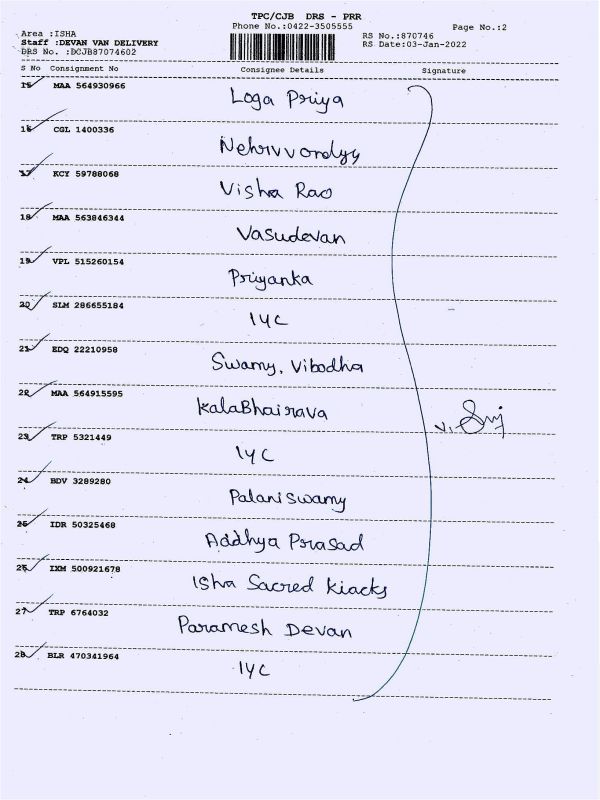 TPC/CJB DRS - PRR
Phone No.:0422-3505555
Page No.:2
Area :ISHA
RS No.:870746
Staff :DEVAN VAN DELIVERY
RS Date:03-Jan-2022
DRS No. :DCJB87074602
S No Consignment No Consignee Details Signature
15 MAA 564930966
Loga Priya
16 CGL 1400336
17 KCY 59788068
Visha Rao
18 MAA 563846344
Vasudevan
19 VPL 515260154
Priyanka
20 SLM 286655184
IYC
21 EDQ 22210958
Swamy, Vibodha
22 MAA 564915595
KalaBhairava
23 TRP 5321449
IYC
24 BDV 3289280
Palaniswamy
25 IDR 50325468
Addhya Prasad
26 IXM 500921678
Isha Sacred Kiacks
27 TRP 6764032
Paramesh Devan
28 BLR 470341964
IYC